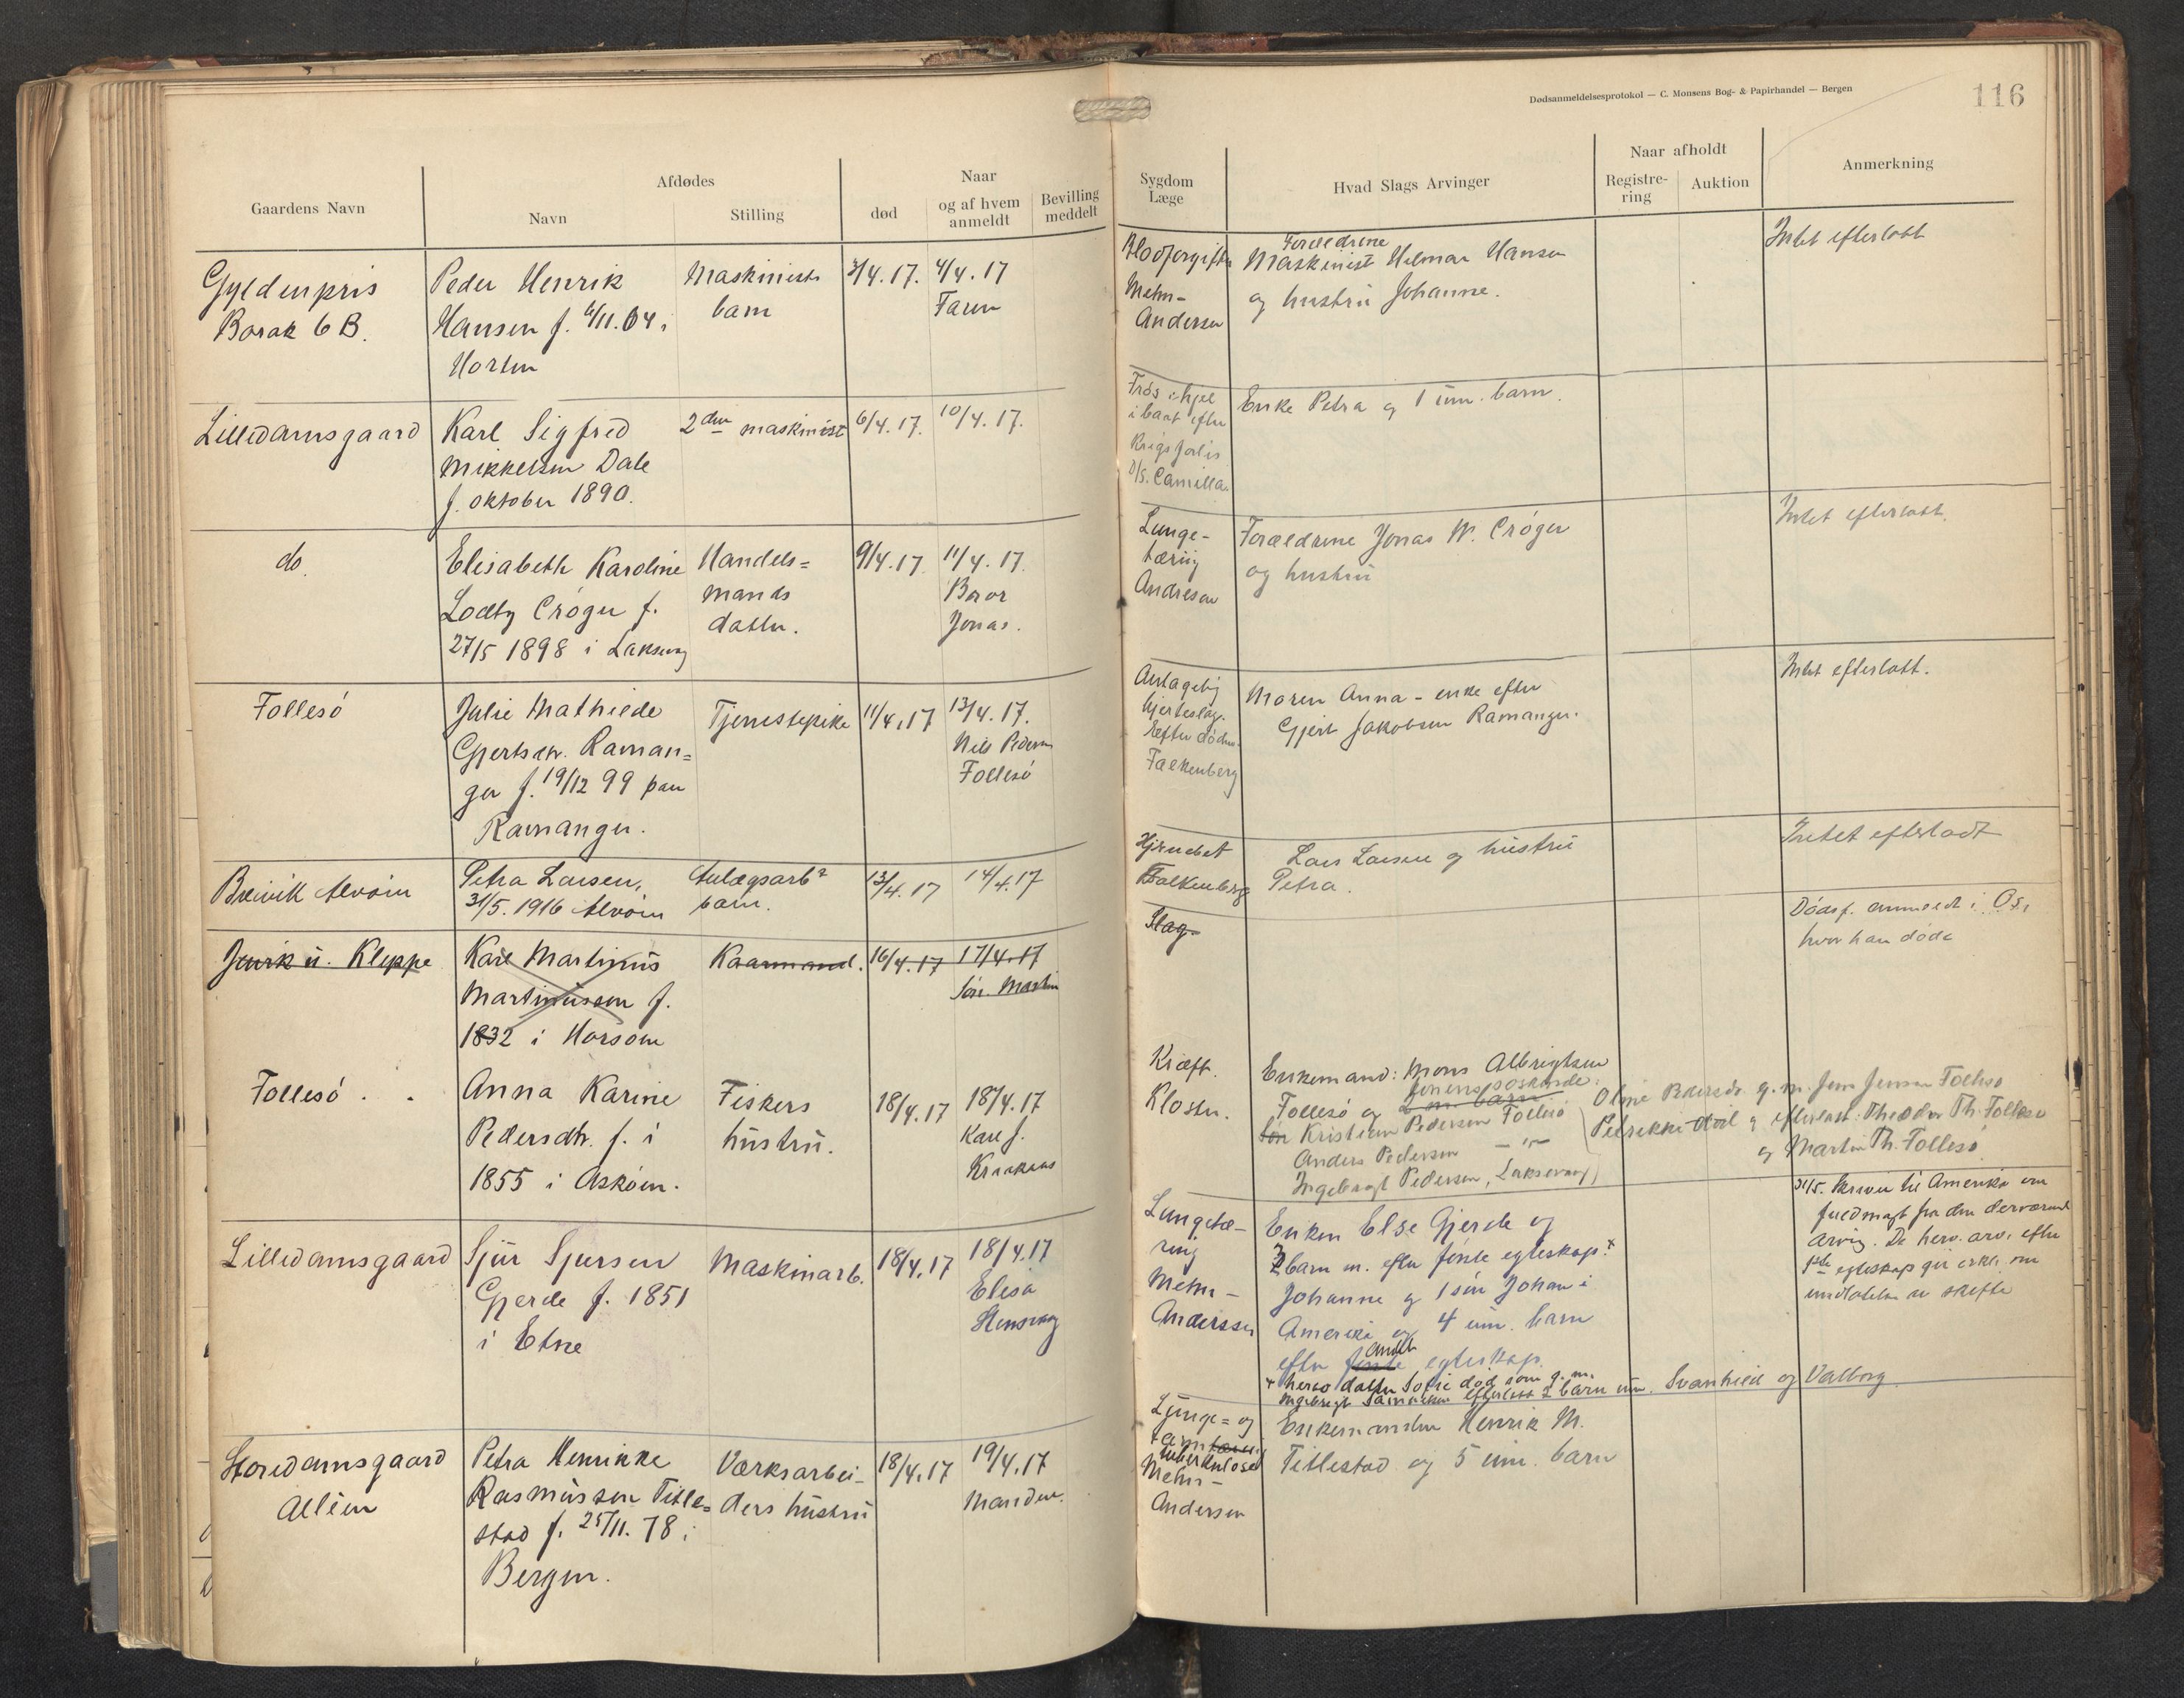 Dødsanmeldelsesprotokol — C. Monsens Bog- & Papirhandel — Bergen
116
Gaardens Navn
Afdødes
Navn
Stilling
Naar
død
og af hvem
anmeldt
Bevilling
meddelt
Sygdom
Læge
Hvad Slags Arvinger
Naar afholdt
Registre-
ring
Auktion
Anmerkning
Gyldenpris
Borak 6 B.
Peder Henrik
Hansen f. 6/11. 04 i
Horten
Maskinists
barn
3/4. 17.
4/4. 17
Faren
Blodforgiftn.
Mehn-
Andersen
Forældrene
Maskinist Hilmar Hansen
og hustru Johanne.
Intet efterlatt
Lilledamsgaard
Karl Sigfred
Mikkelsen Dale
f. oktober 1890.
2den maskinist
6/4. 17.
10/4. 17.
Frøs ihjel
i baat efter
Krigsforlis
D/S. Camilla.
Enke Petra og 1 um. barn.
do.
Elisabeth Karoline
Lodby Crøger f.
27/5 1898 i Laksevåg
Handels=
mands
datter.
9/4. 17.
11/4. 17.
Bror
Jonas.
Lunge-
tæring
Andresen
Forældrene Jonas W. Crøger
og hustru
Intet efterlatt.
Follesø
Julie Mathilde
Gjertsdtr. Raman=
ger f. 19/12 99 paa
Ramanger.
Tjenestepike
11/4. 17
13/4. 17.
Nils Pedersen
Follesø
Antagelig
hjerteslag.
Falkenberg
Moren Anna - enke efter
Gjert Jakobsen Ramanger.
Intet efterlatt.
Breivik Alvøen
Petra Larsen,
31/5. 1916 Alvøen
Anlægsarbr
barn.
13/4. 17
14/4. 17
Falkenberg
Lars Larsen og hustru
Petra.
Intet efterladt
Kleppe
Karl Martinus
Martinussen f.
1832 i Horsøen
Kaarmand.
16/4. 17
17/4. 17
Søn. Martin
Slag.
Dødsf. anmeldt i Os,
hvor han døde
Follesø
Anna Karine
Pedersdtr. f. i
1855 i Askøen.
Fiskers
hustru.
18/4. 17
18/4. 17
Karl J.
Kræft.
Kloster.
Enkemand: Mons Albrigtsen
Follesø og
Kristian Pedersen Follesø
Anders Pedersen — " —
Ingebrigt Pedersen, Laksevaag
Oline Pedersdr. g. m. Jens Jensen Follesø
efterlatt: Theodor Th. Follesø
og Martin Th. Follesø
Lilledamsgaard
Sjur Sjursen
Gjerde f. 1851
i Etne
Maskinarb.
18/4. 17
18/4. 17
Elisa
Lungetæ-
ring
Mehn-
Anderssen
Enken Else Gjerde og
barn m. efter første egteskap. x
Johanne og 1 søn Johan i
Amerika og 4 um. barn
andet
efter første egteskap.
x hvorav datter Sofie død som g. m.
Ingebrigt efterlatt 2 barn um. Svanhild og Valborg
31/5. Skriver til Amerika om
fuldmagt fra den derværende
arving. De herv. arv. efter
1ste egteskap gir erkl. om
undlatelse av skifte
Storedamsgaard
Alléen
Petra Henrikke
Rasmussen Title=
stad f. 25/11. 78 i
Bergen.
Værksarbei-
ders hustru
18/4. 17
19/4. 17
Manden.
Lunge= og
tarm
tuberkulose
Mehn-
Andersen
Enkemanden Henrik M.
Titlestad og 5 um. barn